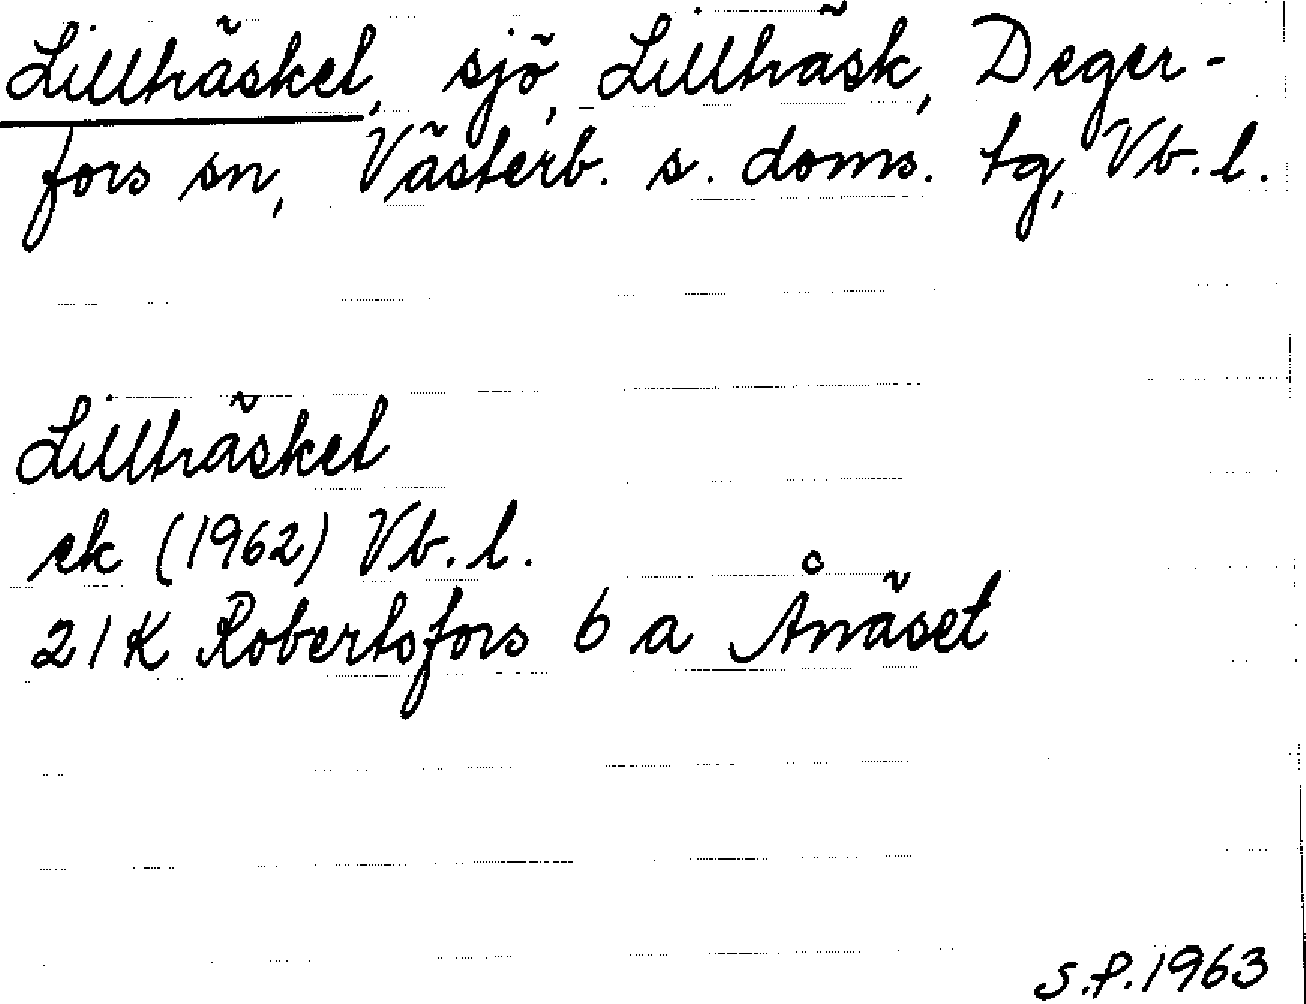 Lillträsket, sjö, Lillträsk, Deger-
fors sn, Västerb. s. doms. tg, Vb. l.
Lillträsket
ek (1962) Vb. l.
21K Robertsfors 6 a Ånäset
S.P. 1963